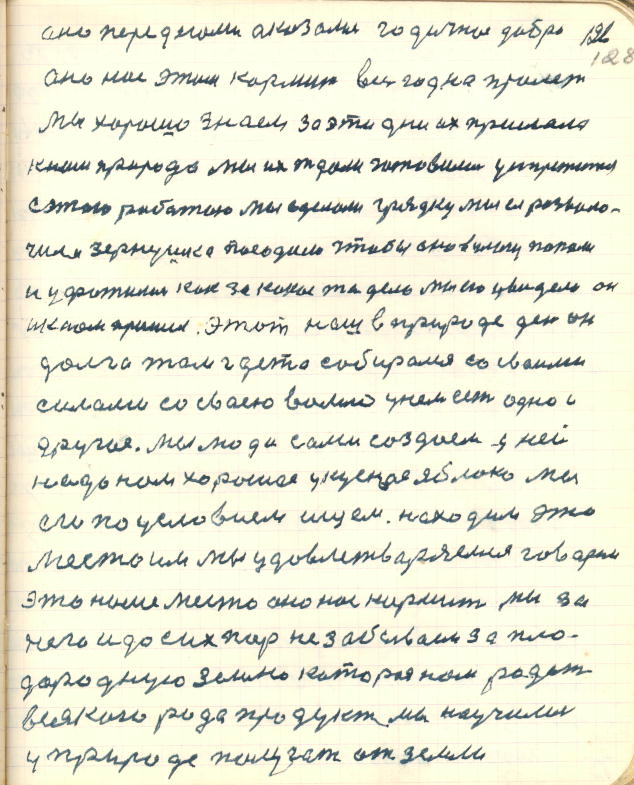 оно перед нами оказало годичное добро 121
128
оно нас этим кормит весь год на пролет
мы хорошо знаем за эти дни их прислала
к нам природа мы их ждали готовили упряжится
с этого работаю мы сделали грядку мы ее разволо-
чили зернушка посодили чтобы оно в могу попали
и удотилися как за какое та дело мы его увидели он
и к нам пришел. этот наш в природе ден он
долга там где то собирался со своими
силами со своею волию у нем ест одно и
другое. мы люди сами создаем у ней
надо нам хорошае укусное яблоко мы
его по условием ищем. находим это
место им мы удовлетваряемся говарим
это наше место оно нас кормит мы за
него и до сих пор не забываем за пло-
дародную землю которая нам родит
всякого рода продукт мы научились
у природе получат от земли